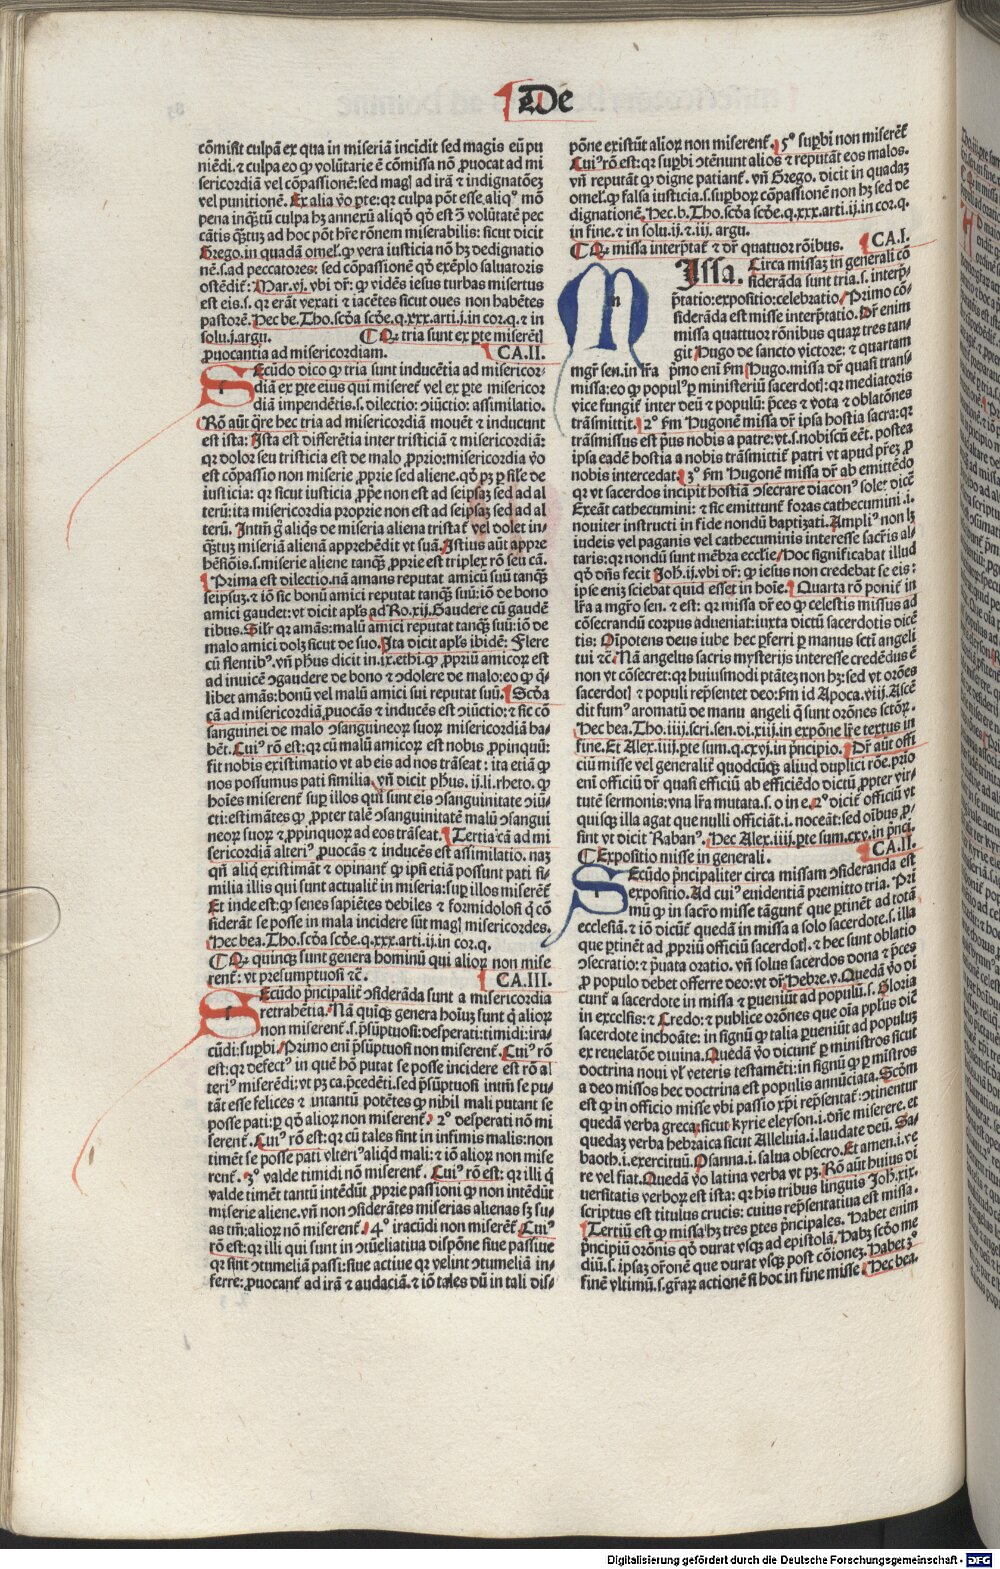 De
cōmisit culpā ex qua in miseriā incidit sed magis eū pu
niēdi. ⁊ culpa eo ꝙ volūtarie ē cōmissa nō ꝓuocat ad mi
sericordiā vel cōpassionē: sed magꝭ ad irā ⁊ indignatōeꝫ
vel punitionē. Ex alia vo ꝑte: qꝛ culpa pōt esse aliqͦ mō
pena inqꝫtū culpa hꝫ annexū aliqd qd est ɔ̄ volūtatē pec
cātis qꝫtuꝫ ad hoc pōt hr̄e rōnem miserabilis: sicut dicit
Grego. in quadā omel. ꝙ vera iusticia nō hꝫ dedignatio
nē. s. ad peccatores: sed cōpassionē qd exēplo saluatoris
ostēdit: Mar. vj. vbi dr̄: ꝙ vidēs iesus turbas misertus
est eis. s. qꝛ erāt vexati ⁊ iacētes sicut oues non habētes
pastorē. Hec be. Tho. scda scde. q. xxx. arti. j. in cor. q. ⁊ in
solu. j. argu. ¶ Qꝫ tria sunt ex ꝑte miserētꝭ
ꝓuocantia ad misericordiam. CA. II.
SEcūdo dico ꝙ tria sunt inducētia ad misericor-
diā ex ꝑte eius qui miseret̄ vel ex ꝑte misericor
diā impendētis. s. dilectio: ɔiūctio: assimilatio.
Rō aūt q̄re hec tria ad misericordiā mouēt ⁊ inducunt
est ista: Ista est differētia inter tristiciā ⁊ misericordiā:
qꝛ dolor seu tristicia est de malo ꝓprio: misericordia vo
est cōpassio non miserie ꝓprie sed aliene. qd pꝫ ꝑ sil̄e de
iusticia: qꝛ sicut iusticia ꝓpe non est ad seipsaꝫ sed ad al
terū: ita misericordia proprie non est ad seipsaꝫ sed ad al
terū. Intm̄ g̊ aliqs de miseria aliena tristat̄ vel dolet in/
qꝫtuꝫ miseriā alienā apprehēdit vt suā. Istius aūt appre
hēsiōis. s. miserie aliene tanqꝫ ꝓprie est triplex rō seu cā.
Prima est dilectio. nā amans reputat amicū suū tanqꝫ
seipsuꝫ. ⁊ iō sic bonū amici reputat tanqꝫ suū: iō de bono
amici gaudet: vt dicit apls ad Ro. xij. Gaudere cū gaudē
tibus. Silr̄ qꝛ amās: malū amici reputat tanqꝫ suū: iō de
malo amici dolꝫ sicut de suo. Ita dicit apls ibidē: Flere
cū flentibꝰ. vn̄ phus dicit in. ix. ethi. ꝙ ꝓpriū amicoꝝ est
ad inuicē ɔgaudere de bono ⁊ ɔdolere de malo: eo ꝙ q̄-
libet amās: bonū vel malū amici sui reputat suū. Scda
cā ad misericordiā ꝓuocās ⁊ inducēs est ɔiūctio: ⁊ sic cō
sanguinei de malo ɔsanguineoꝝ suoꝝ misericordiā ha-
bēt. Cuiꝰ rō est: qꝛ cū malū amicoꝝ est nobis ꝓpinquū:
fit nobis existimatio vt ab eis ad nos trāseat: ita etiā ꝙ
nos possumus pati similia. vn̄ dicit phus. ij. li. rheto. ꝙ
hoīes miserent̄ suꝑ illos qui sunt eis ɔsanguinitate ɔiū-
cti: estimātes ꝙ ꝓpter talē ɔsanguinitatē malū ɔsangui
neoꝝ suoꝝ ⁊ ꝓpinquoꝝ ad eos trāseat. Tertia cā ad mi
sericordiā alteriꝰ ꝓuocās ⁊ inducēs est assimilatio. naꝫ
qn̄ aliq existimāt ⁊ opinant̄ ꝙ ipsi etiā possunt pati si-
milia illis qui sunt actualit̄ in miseria: suꝑ illos miserēt̄
Et inde est: ꝙ senes sapiētes debiles ⁊ formidolosi q̄ cō
siderāt se posse in mala incidere sūt magꝭ misericordes.
Hec bea. Tho. scda scde. q. xxx. arti. ij. in cor. q.
¶ Qꝫ quinqꝫ sunt genera hominū qui alioꝝ non mise
rent̄: vt presumptuosi ⁊c̄. CA. III.
SEcūdo pncipalit̄ ɔsiderāda sunt a misericordia
retrahētia. Nā quīqꝫ genera hoiuꝫ sunt q̄ alioꝝ
non miserent̄. s. p̄sūptuosi: desperati: timidi: ira-
cūdi: supbi. Primo enī p̄sūptuosi non miserent̄. Cuiꝰ rō
est: qꝛ defectꝰ in quē hō putat se posse incidere est rō al
teriꝰ miserēdi: vt pꝫ ca. p̄cedēti. sed p̄sūptuosi intm̄ se pu-
tāt esse felices ⁊ intantū potētes ꝙ nihil mali putant se
posse pati: ꝑ qd alioꝝ non miserent̄. 2ͦ desperati nō mi
serent̄. Cuiꝰ rō est: qꝛ cū tales sint in infimis malis: non
timēt se posse pati vlteriꝰ aliqd mali: ⁊ iō alioꝝ non mise
rent̄. 3ͦ valde timidi nō miserent̄. Cuiꝰ rō est: qꝛ illi q̄
valde timēt tantū intēdūt ꝓprie passioni ꝙ non intēdūt
miserie aliene. vn̄ non ɔsiderātes miserias alienas sꝫ su-
as tm̄: alioꝝ nō miserent̄. 4ͦ iracūdi non miserēt̄. Cuiꝰ
rō est: qꝛ illi qui sunt in ɔtūeliatiua dispōne siue passiue
qꝛ sūt ɔtumeliā passi: siue actiue qꝛ velint ɔtumeliā in-
ferre: ꝓuocant̄ ad irā ⁊ audaciā. ⁊ iō tales dū in tali dis/
pōne existūt alioꝝ non miserent̄. 5ͦ supbi non miserēt̄
Cuiꝰ rō est: qꝛ supbi ɔtēnunt alios ⁊ reputāt eos malos.
vn̄ reputāt ꝙ digne patiant̄. vn̄ Grego. dicit in quadaꝫ
omel. ꝙ falsa iusticia. s. supboꝝ cōpassionē non hꝫ sed de
dignationē. Hec. b. Tho. scda scde. q. xxx. arti. ij. in cor. q.
in fine. ⁊ in solu. ij. ⁊. iij. argu.
¶ Qꝫ missa interptat̄ ⁊ dr̄ quatuor rōibus. CA. I.
MIssa. Circa missaꝫ in generali cō
siderāda sunt tria. s. interp-
tatio: expositio: celebratio. Primo cō-
siderāda est misse interptatio. Dr̄ enim
missa quattuor rōnibus quaꝝ tres tan/
git Hugo de sancto victore: ⁊ quartam
mgr̄ sen. in lr̄a pmo enī fm Hugo. missa dr̄ quasi trans-
missa: eo ꝙ popul' ꝑ ministeriū sacerdotꝭ: qꝛ mediatoris
vice fungit̄ inter deū ⁊ populū: pces ⁊ vota ⁊ oblatōnes
trāsmittit. 2ͦ fm Hugonē missa dr̄ ipsa hostia sacra: qꝛ
trāsmissus est pus nobis a patre: vt. s. nobiscū eēt. postea
ipsa eadē hostia a nobis trāsmittit̄ patri vt apud pr̄eꝫ ꝓ
nobis intercedat. 3ͦ fm Hugonē missa dr̄ ab emittēdo
qꝛ vt sacerdos incipit hostiā ɔsecrare diaconꝰ solet dicē
Exeāt cathecumini: ⁊ sic emittunt̄ foras cathecumini. i.
nouiter instructi in fide nondū baptizati. Ampliꝰ non lꝫ
iudeis vel paganis vel cathecuminis interesse sacr̄is al-
taris: qꝛ nondū sunt mēbra eccl̄ie. Hoc significabat illud
qd dn̄s fecit Joh. ij. vbi dr̄: ꝙ iesus non credebat se eis:
ipse enīꝫ sciebat quid esset in hoīe. Quarta rō ponit̄ in
lr̄a a mgr̄o sen. ⁊ est: qꝛ missa dr̄ eo ꝙ celestis missus ad
cōsecrandū corpus adueniat: iuxta dictū sacerdotis dicē
tis: Oīpotens deus iube hec ꝑferri ꝑ manus scti angeli
tui ⁊c̄. Nā angelus sacris mysterijs interesse credēdus ē
non vt cōsecret: qꝛ huiusmodi ptāteꝫ non hꝫ: sed vt orōes
sacerdotꝭ ⁊ populi rep̄sentet deo: fm id Apoca. viij. Ascē
dit fumꝰ aromatū de manu angeli q̄ sunt orōnes sctoꝝ.
Hec bea. Tho. iiij. scri. sen. di. xiij. in expōne lr̄e textus in
fine. Et Alex. iiij. ꝑte sum. q. cxvj. in pncipio. Dr̄ aūt offi
ciū misse vel generalit̄ quodcūqꝫ aliud duplici rōe. prio
enī officiū dr̄ quasi efficiū ab efficiēdo dictū ꝓpter vir-
tutē sermonis: vna lr̄a mutata. s. o in e. 2ͦ dicit̄ officiū vt
quisqꝫ illa agat que nulli officiāt. i. noceāt: sed oībus ꝓ-
sint vt dicit Rabanꝰ. Hec Alex. iiij. ꝑte sum. cxv. in pnci.
¶ Expositio misse in generali. CA. II.
SEcūdo pncipaliter circa missam ɔsideranda est
expositio. Ad cuiꝰ euidentiā premitto tria. Pri
mū ꝙ in sacr̄o misse tāgunt̄ que ꝑtinēt ad totā
ecclesiā. ⁊ iō dicūt̄ quedā in missa a solo sacerdote. s. illa
que ꝑtinēt ad ꝓpriū officiū sacerdotꝭ. ⁊ hec sunt oblatio
ɔsecratio: ⁊ puata oratio. vn̄ solus sacerdos dona ⁊ pces
ꝓ populo debet offerre deo: vt dr̄. Hebre. v. Quedā vo di
cunt̄ a sacerdote in missa ⁊ ꝑueniūt ad populū. s. Gloria
in excelsis: ⁊ Credo: ⁊ publice orōnes que oīa ppl̄us dicit
sacerdote inchoāte: in signū ꝙ talia ꝑueniūt ad populuꝫ
ex reuelatōe diuina. Quedā vo dicunt̄ ꝑ ministros sicut
doctrina noui vl' veteris testamēti: in signū ꝙ ꝑ mīstros
a deo missos hec doctrina est populis annūciata. Scdm
est ꝙ in officio misse vbi passio xpi rep̄sentat̄: ɔtinentur
quedā verba greca: sicut kyrie eleyson. i. dn̄e miserere. et
quedaꝫ verba hebraica sicut Alleluia. i. laudate deū. Sa-
baoth. i. exercituū. Osanna. i. salua obsecro. Et amen. i. ve
re vel fiat. Quedā vo latina verba vt pꝫ. Rō aūt huius di
uersitatis verboꝝ est ista: qꝛ his tribus linguis Joh. xix.
scriptus est titulus crucis: cuius rep̄sentatiua est missa.
Tertiū est ꝙ missa hꝫ tres ꝑtes pncipales. Habet enim
pncipiū orōnis qd durat vsqꝫ ad epistolā. Habꝫ scdo me
diū. s. ipsaꝫ or̄onē que durat vsqꝫ post cōioneꝫ. Habet 3ͦ
finē vltimū. s. gr̄aꝝ actionē si hoc in fine misse. Hec bea.
Digitalisierung gefördert durch die Deutsche Forschungsgemeinschaft - DFG